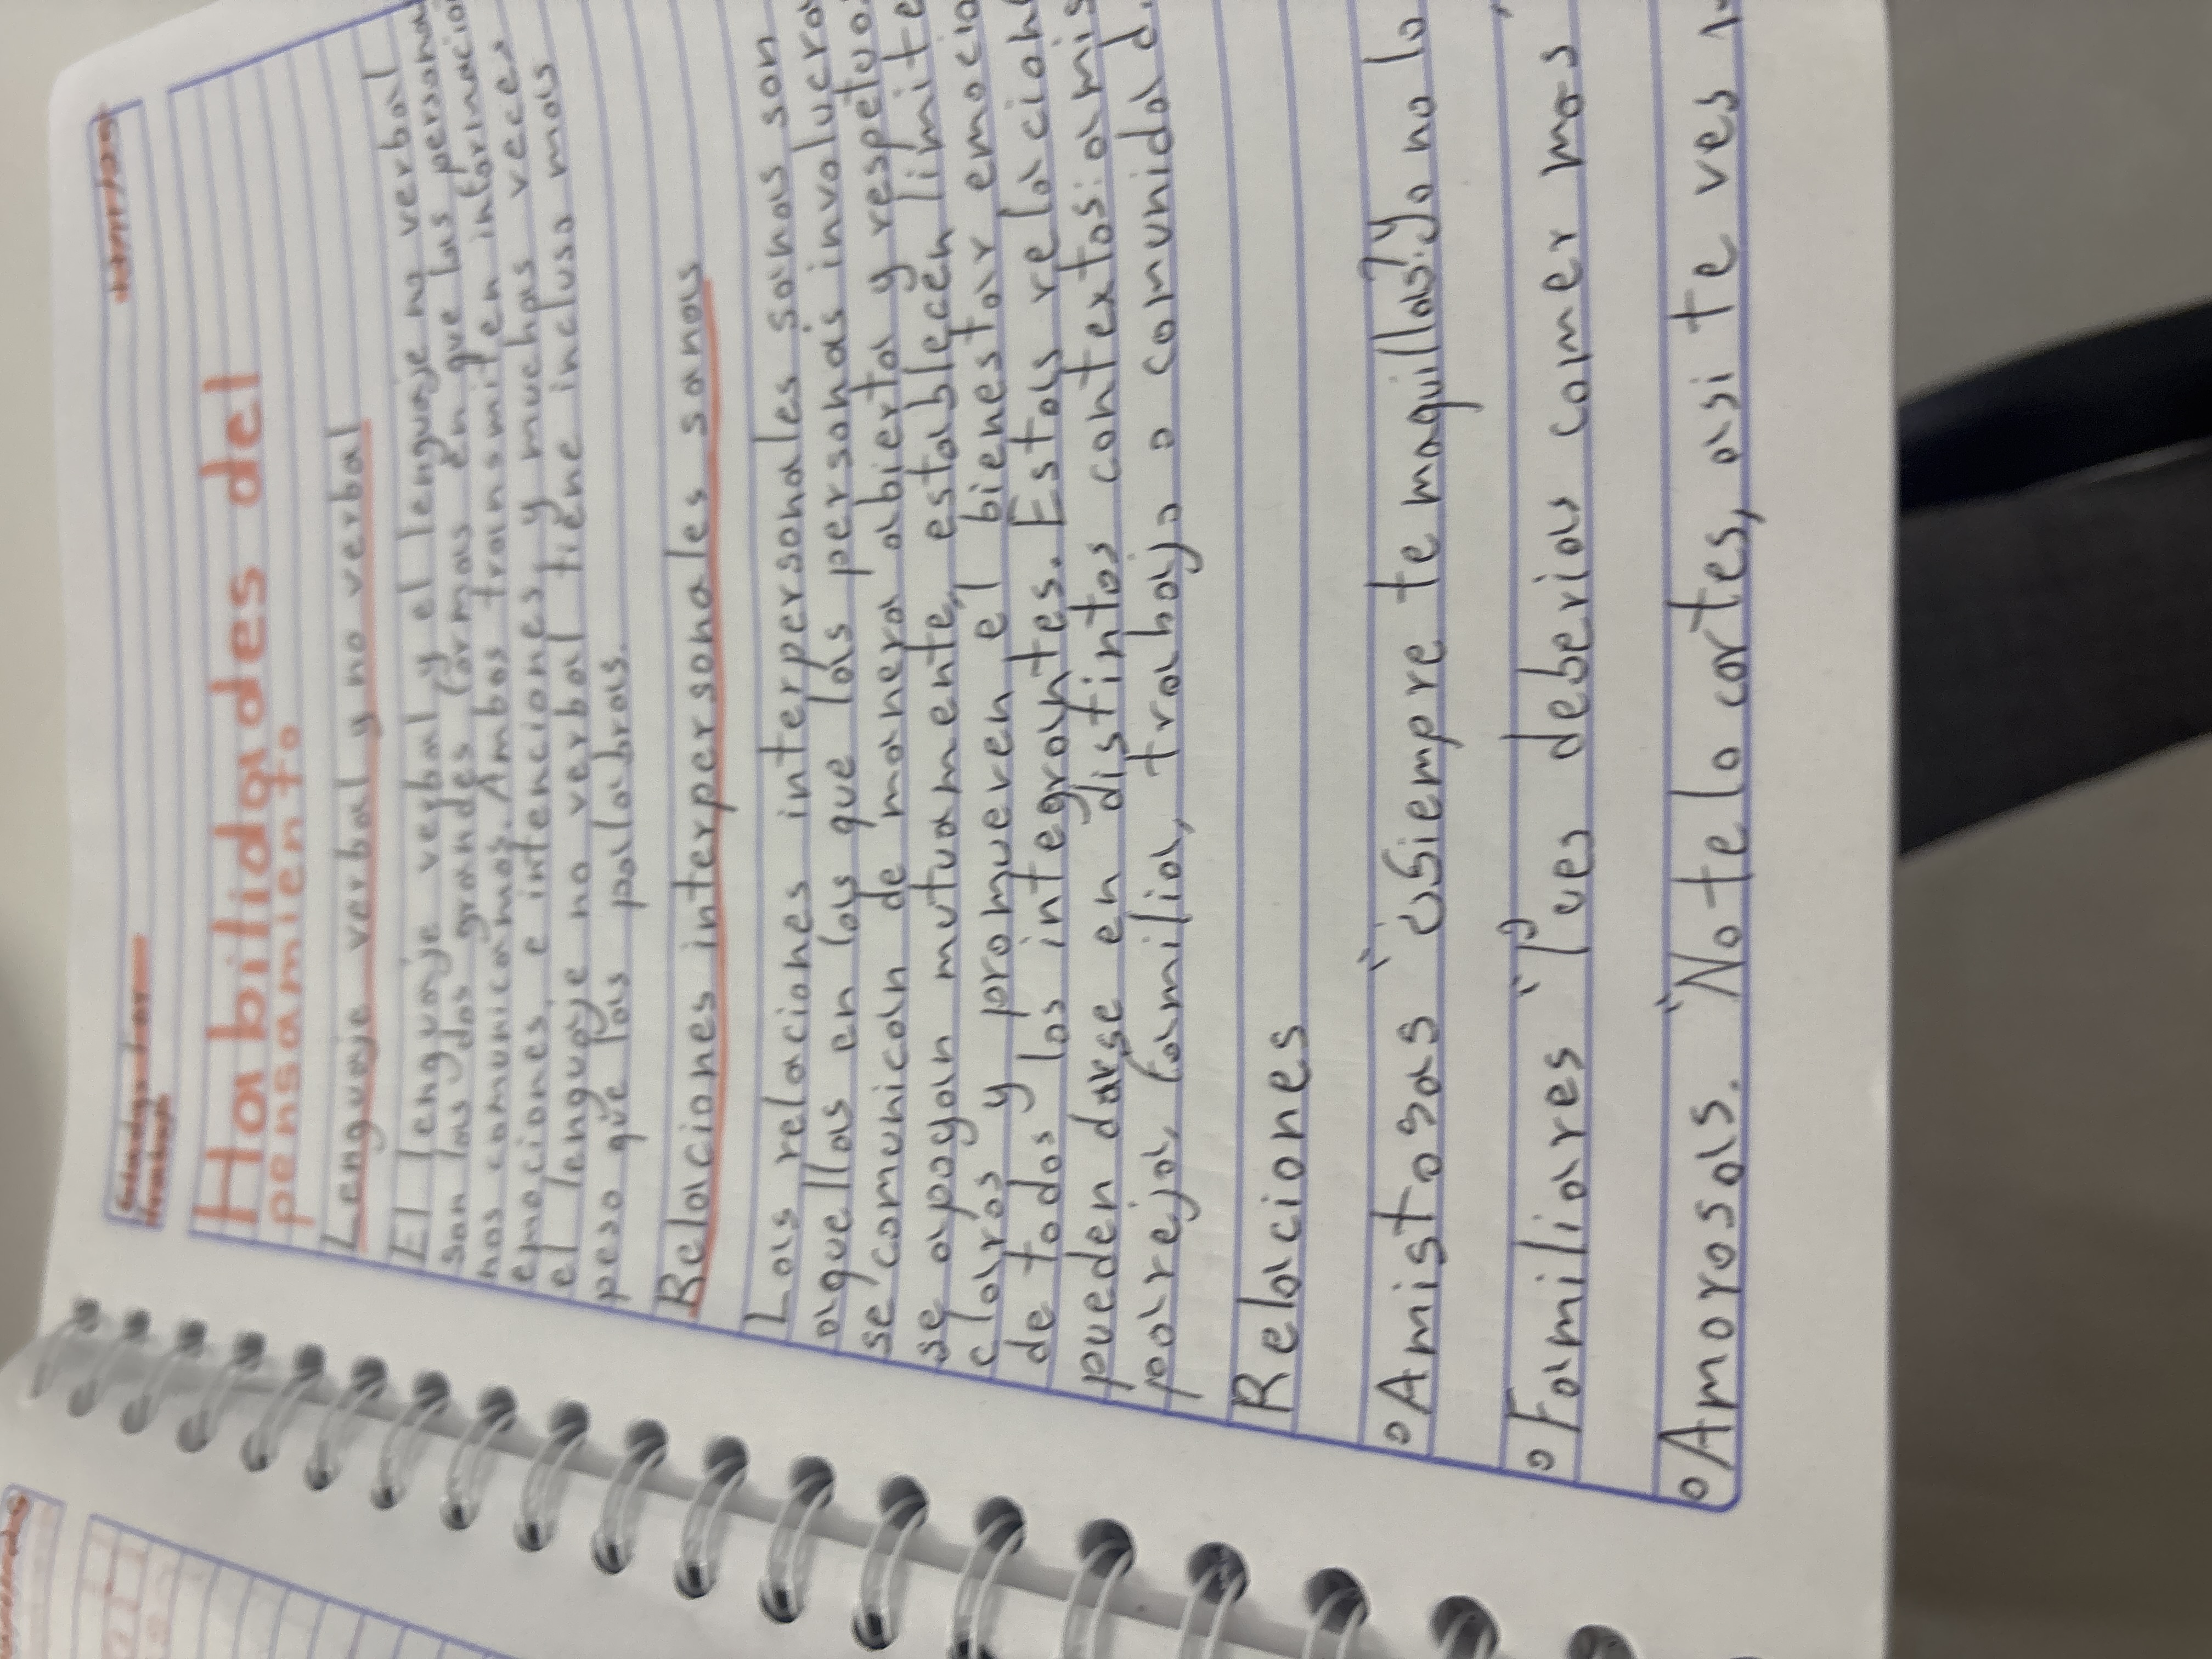 Habilidades del
pensamiento
Lenguaje verbal y no verbal
El lenguaje verbal y el lenguaje no verbal
son las dos grandes formas en que las personas
nos comunicamos. Ambos transmiten informacio
emociones e intenciones, y muchas veces
el lenguaje no verbal tiene incluso mas
peso que las palabras.
Relaciones interpersonales sanas
Las relaciones interpersonales sanas son
aquellas en las que las personas involucra
se comunican de manera abierta y respetuo
se apoyan mutuamente, establecen limite
claros y promueven el bienestar emocio
de todos los integrantes. Estas relacion
pueden darse en distintos contextos: amis
pareja, familia, trabajo o comunidad.
Relaciones
Amistosas "¿Siempre te maquillas? Yo no lo
Familiares "Pues deberias comer mas
Amorosas. "No te lo cortes, asi te ves